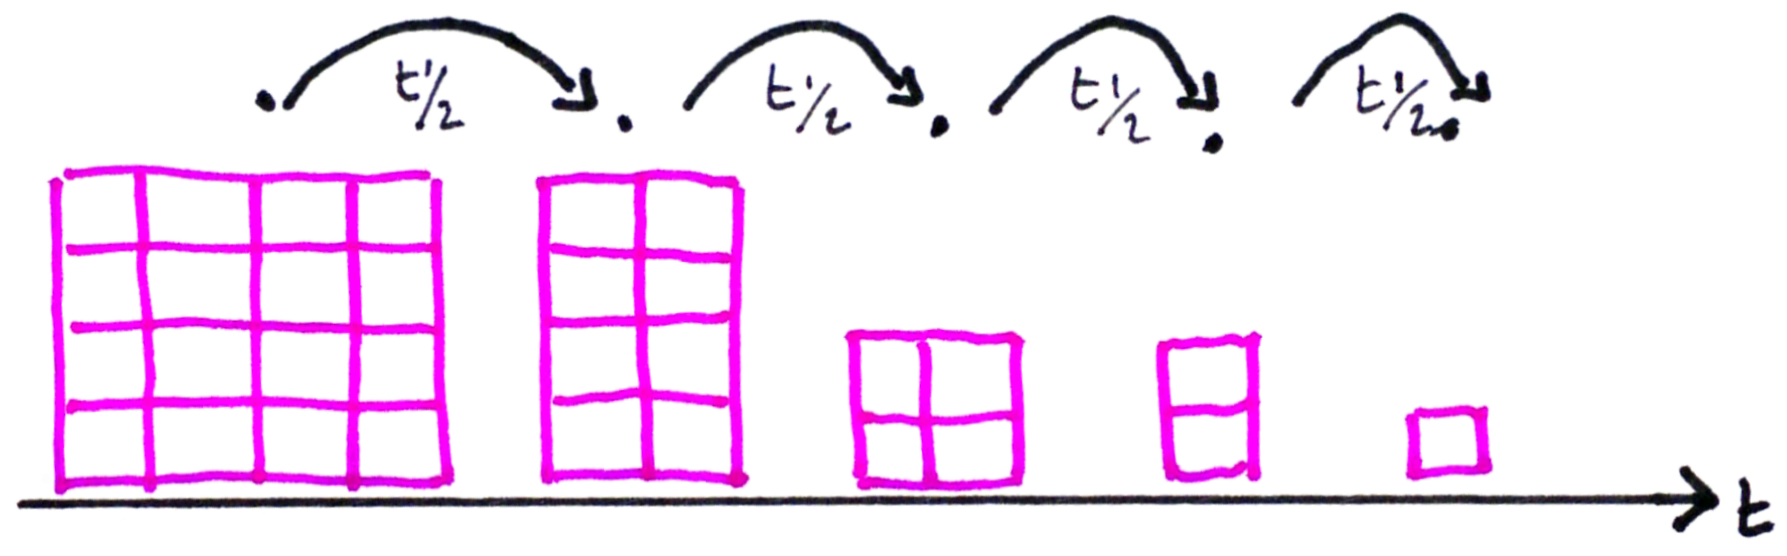 t1/2 t1/2 t1/2 t1/2
t